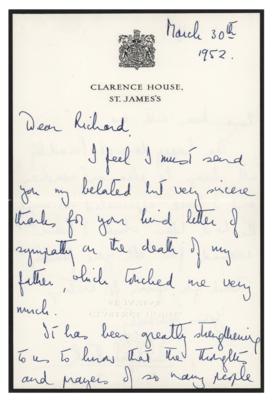 March 30th
1952.
CLARENCE HOUSE,
ST. JAMES'S
Dear Richard,
I feel I must send
you my belated but very sincere
thanks for your kind letter of
sympathy on the death of my
father, which touched me very
much.
It has been greatly strengthening
to us to know that the thoughts
and prayers of so many people